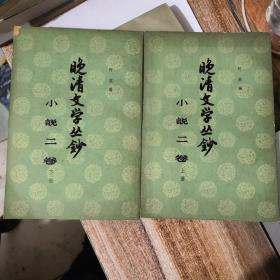 阿英編
晚清文学丛鈔
小說二卷
下册
阿英編
晚清文学丛鈔
小說二卷
上册